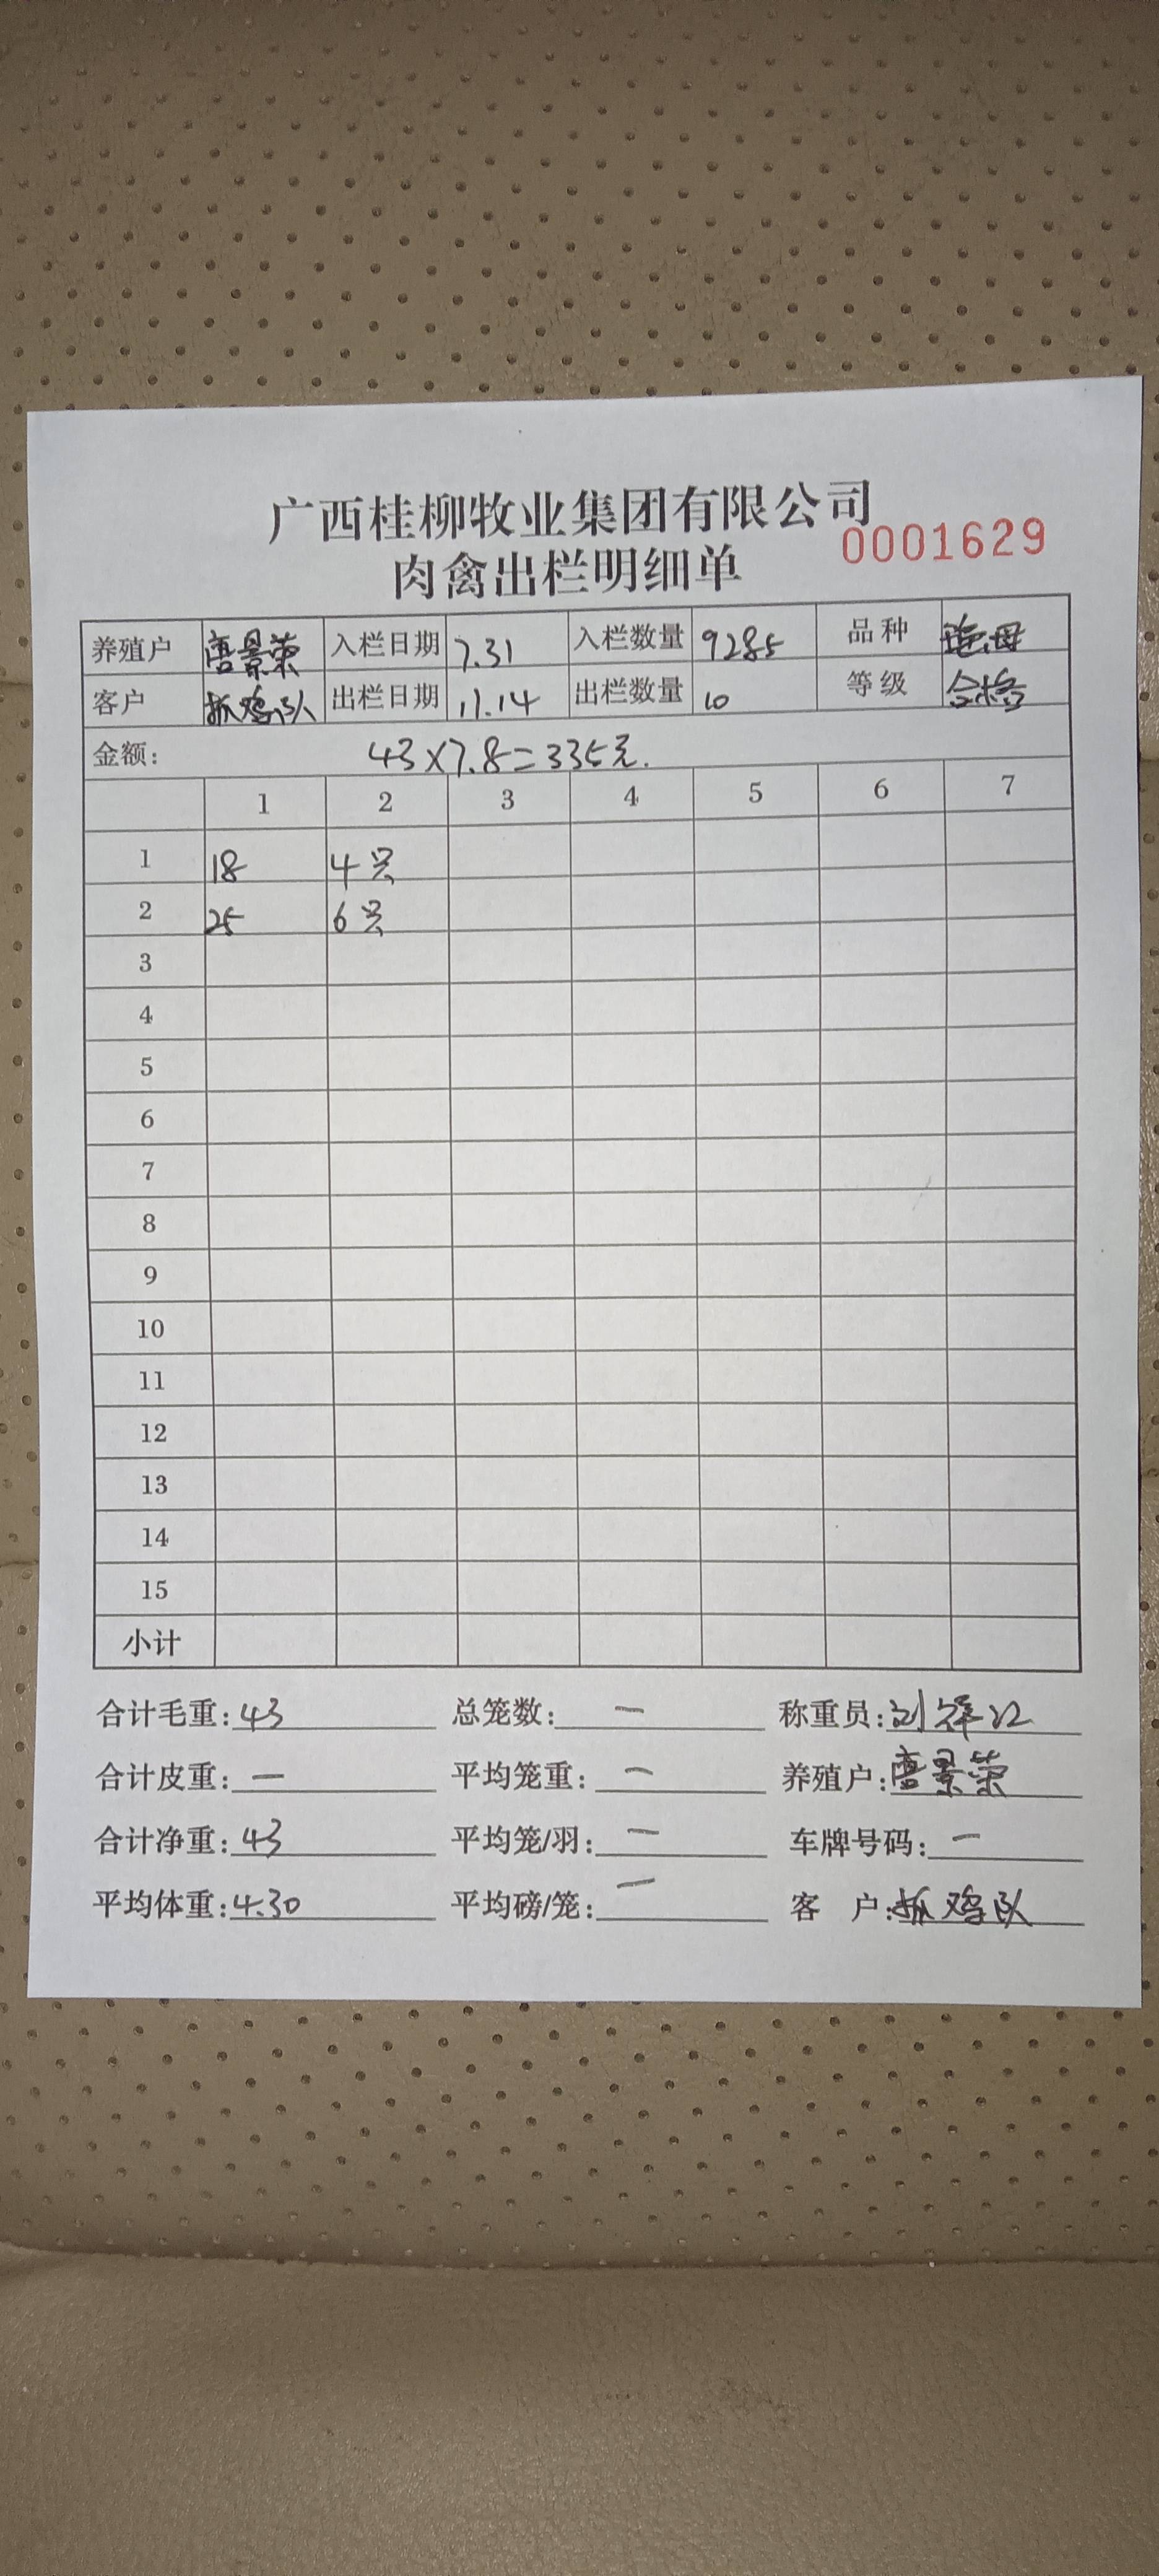 广西桂柳牧业集团有限公司
0001629
肉禽出栏明细单
养殖户 唐景荣 入栏日期 7.31 入栏数量 9285 品种
客户 抓鸡队 出栏日期 11.14 出栏数量 10 等级 合格
金额: 43×7.8=335元.
1 2 3 4 5 6 7
1 18 4只
2 25 6只
3
4
5
6
7
8
9
10
11
12
13
14
15
小计
合计毛重:43 总笼数:一 称重员:刘祥
合计皮重:一 平均笼重:一 养殖户:唐景荣
合计净重:43 平均笼/羽:一 车牌号码:一
平均体重:4.30 平均磅/笼:一 客 户:抓鸡队